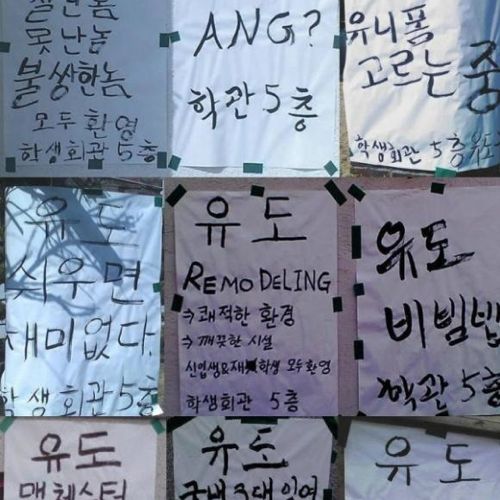 잘난놈
못난놈
불쌍한놈
모두 환영
학생회관 5층
ANG?
학관 5층
유니폼
고르는 중
학생회관 5층 유도
유도
쉬우면
재미없다.
학생회관 5층
유도
REMODELING
→쾌적한 환경
→깨끗한 시설
신입생&재학생 모두환영
학생회관 5층
유도
비빔밥
학관 5층
유도
맨체스터
유도
유도